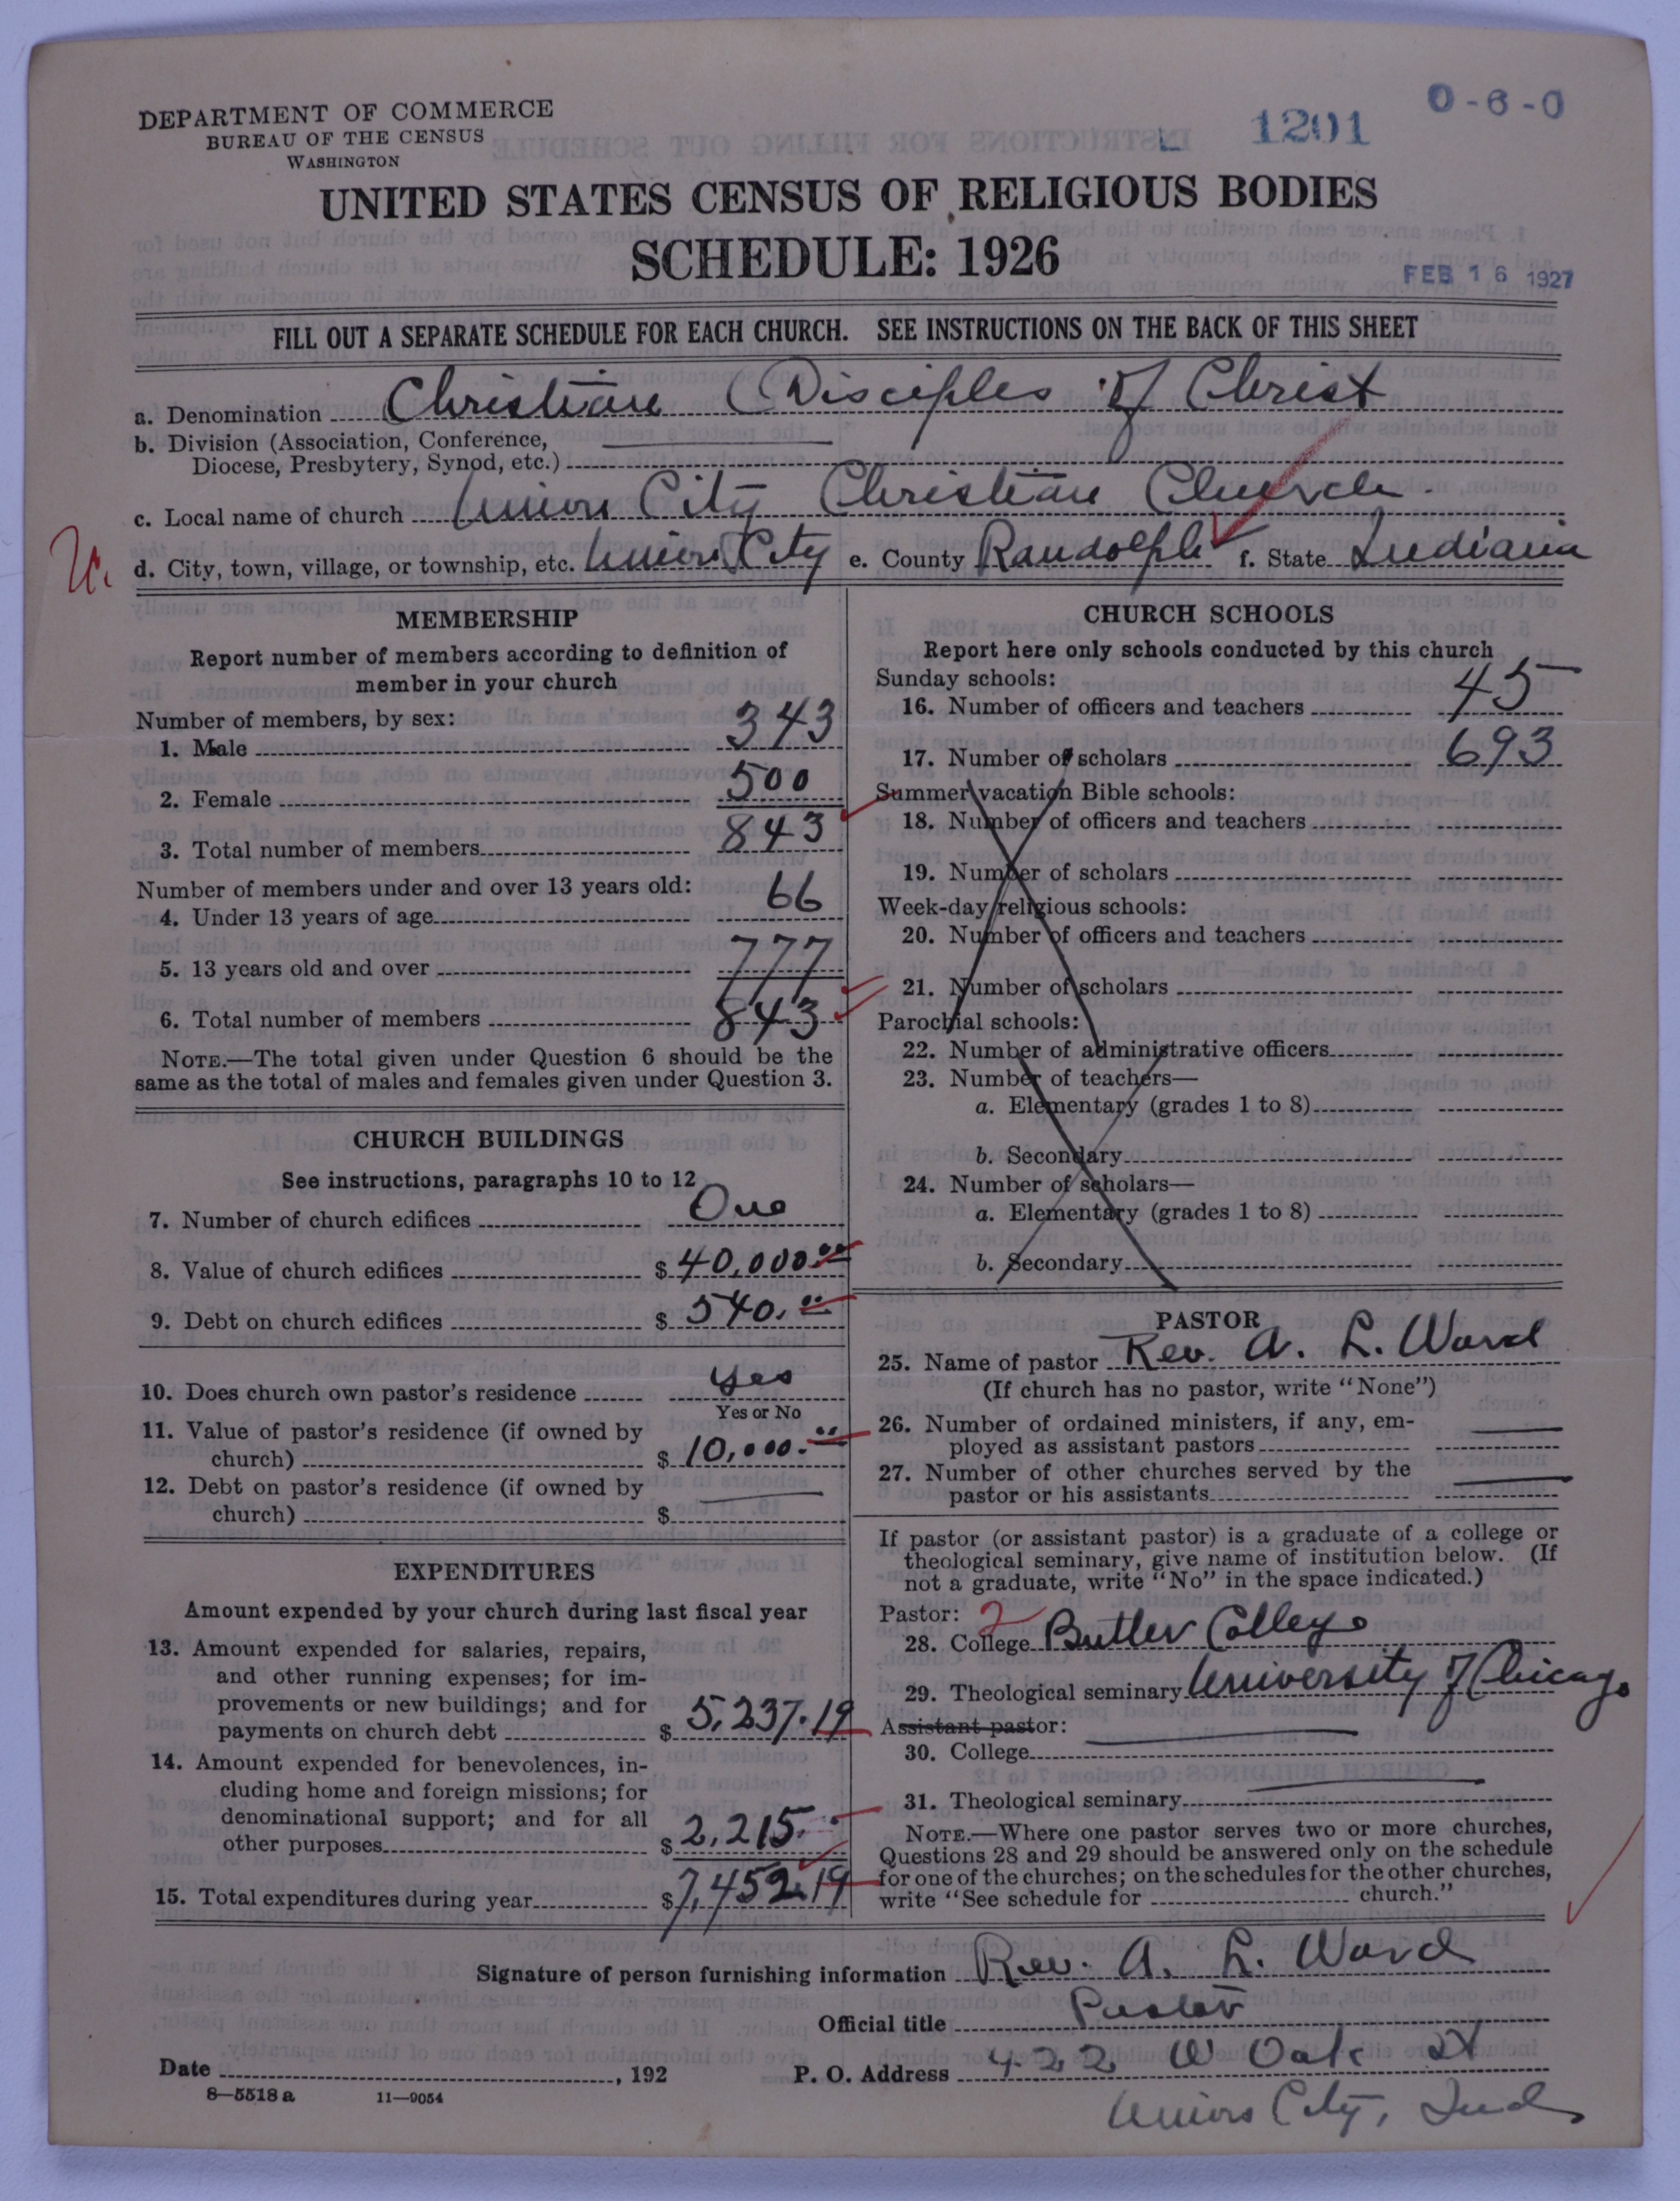 DEPARTMENT OF COMMERCE
BUREAU OF THE CENSUS
WASHINGTON
1201
0-6-0
UNITED STATES CENSUS OF RELIGIOUS BODIES
SCHEDULE: 1926
FEB 16 1927
FILL OUT A SEPARATE SCHEDULE FOR EACH CHURCH. SEE INSTRUCTIONS ON THE BACK OF THIS SHEET
a. Denomination Christian (Disciples of Christ
b. Division (Association, Conference,
Diocese, Presbytery, Synod, etc.)
c. Local name of church Union City Christian Church.
d. City, town, village, or township, etc. Union City e. County Randolph f. State Indiana
MEMBERSHIP
Report number of members according to definition of
member in your church
Number of members, by sex:
1. Male 343
2. Female 500
3. Total number of members 843
Number of members under and over 13 years old:
4. Under 13 years of age 66
5. 13 years old and over 777
6. Total number of members 843
NOTE.—The total given under Question 6 should be the
same as the total of males and females given under Question 3.
CHURCH BUILDINGS
See instructions, paragraphs 10 to 12
7. Number of church edifices One
8. Value of church edifices $ 40,000.00
9. Debt on church edifices $ 540.00
10. Does church own pastor's residence yes
Yes or No
11. Value of pastor's residence (if owned by
church) $ 10,000.00
12. Debt on pastor's residence (if owned by
church) $
EXPENDITURES
Amount expended by your church during last fiscal year
13. Amount expended for salaries, repairs,
and other running expenses; for im-
provements or new buildings; and for
payments on church debt $ 5,237.19
14. Amount expended for benevolences, in-
cluding home and foreign missions; for
denominational support; and for all
other purposes $ 2,215.
15. Total expenditures during year $ 7,452.19
CHURCH SCHOOLS
Report here only schools conducted by this church
Sunday schools:
16. Number of officers and teachers 45
17. Number of scholars 693
Summer vacation Bible schools:
18. Number of officers and teachers
19. Number of scholars
Week-day religious schools:
20. Number of officers and teachers
21. Number of scholars
Parochial schools:
22. Number of administrative officers
23. Number of teachers—
a. Elementary (grades 1 to 8)
b. Secondary
24. Number of scholars—
a. Elementary (grades 1 to 8)
b. Secondary
PASTOR
25. Name of pastor Rev. A. L. Ward
(If church has no pastor, write "None")
26. Number of ordained ministers, if any, em-
ployed as assistant pastors
27. Number of other churches served by the
pastor or his assistants
If pastor (or assistant pastor) is a graduate of a college or
theological seminary, give name of institution below. (If
not a graduate, write "No" in the space indicated.)
Pastor: 2
28. College Butler College
29. Theological seminary University of Chicago
Assistant pastor:
30. College
31. Theological seminary
NOTE.—Where one pastor serves two or more churches,
Questions 28 and 29 should be answered only on the schedule
for one of the churches; on the schedules for the other churches,
write "See schedule for church."
Signature of person furnishing information Rev. A. L. Ward
Official title Pastor
Date , 192 P. O. Address 422 W Oak St
Union City, Ind
8—5518 a 11—9054